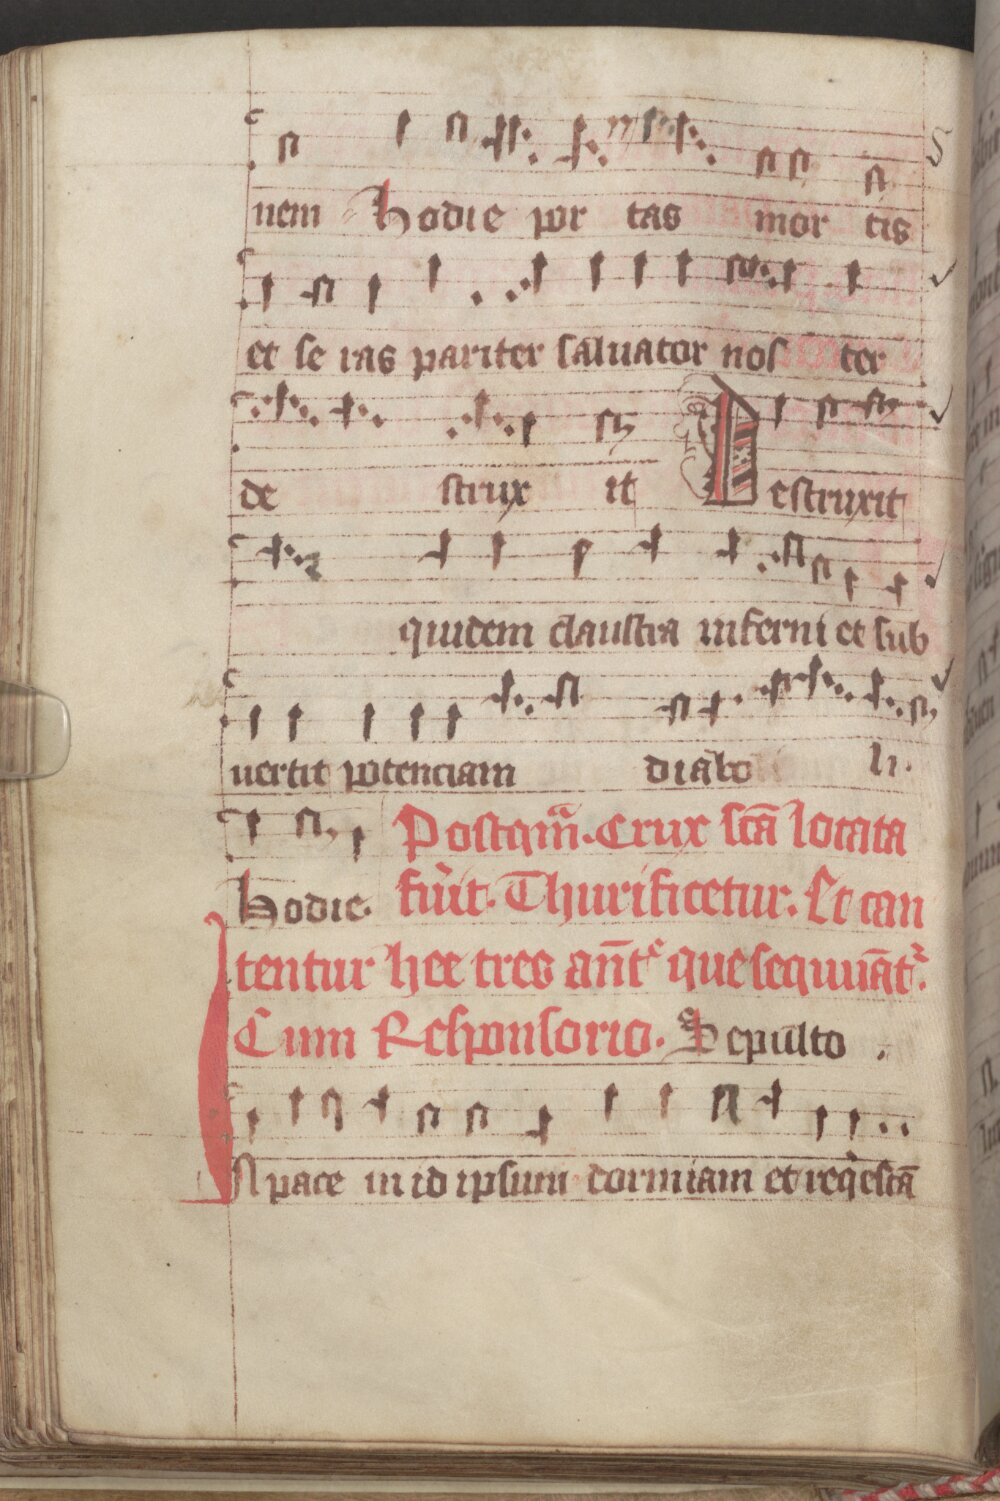 nem Hodie por tas mor tis
et se ras pariter saluator nos ter
de strux it Destruxit
quidem claustra inferni et sub
uertit potenciam diabo li.
Postqm̄. Crux scā locata
Hodie. fu̾it. Thurificetur. Et can
tentur hee tres ant̄ꝰ que sequūnt᷑.
Cum Rehponsorio. Sepulto .
IN pace in id ipsum dormiam et reqiescā